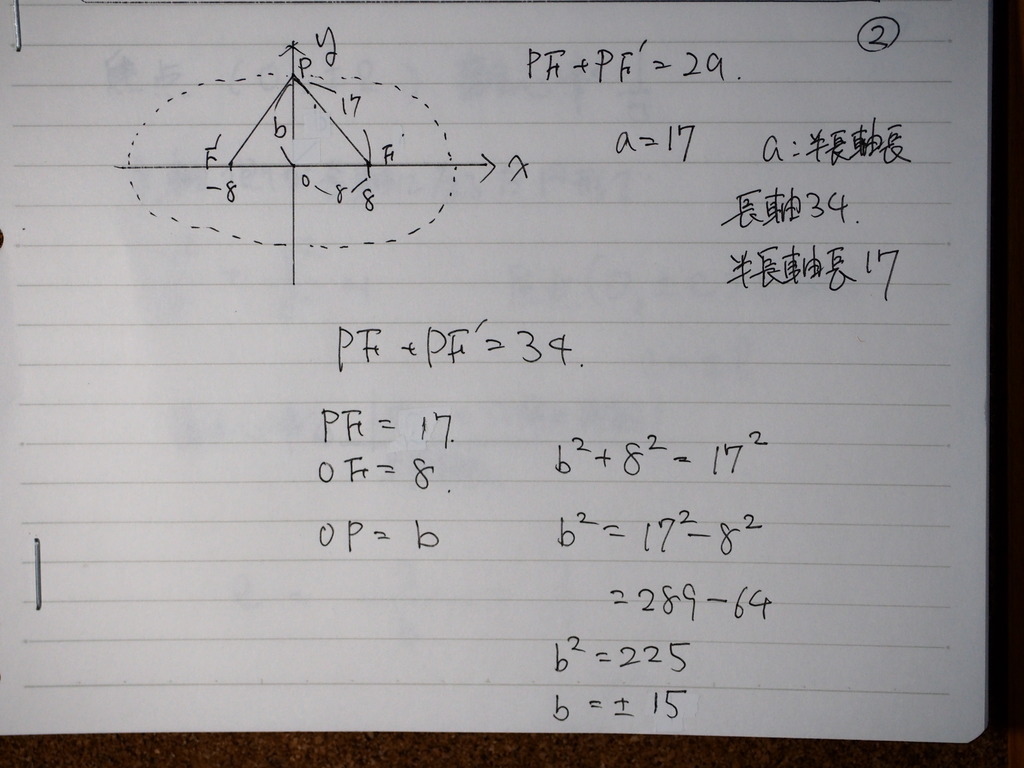 ②
y
P
17
b
F′
F
-8
0
8
8
x
PF+PF′=2a.
a=17
a:半長軸長
長軸34.
半長軸長17
PF+PF′=34.
PF=17.
OF=8.
OP=b
b²+8²=17²
b²=17²-8²
=289-64
b²=225
b=±15